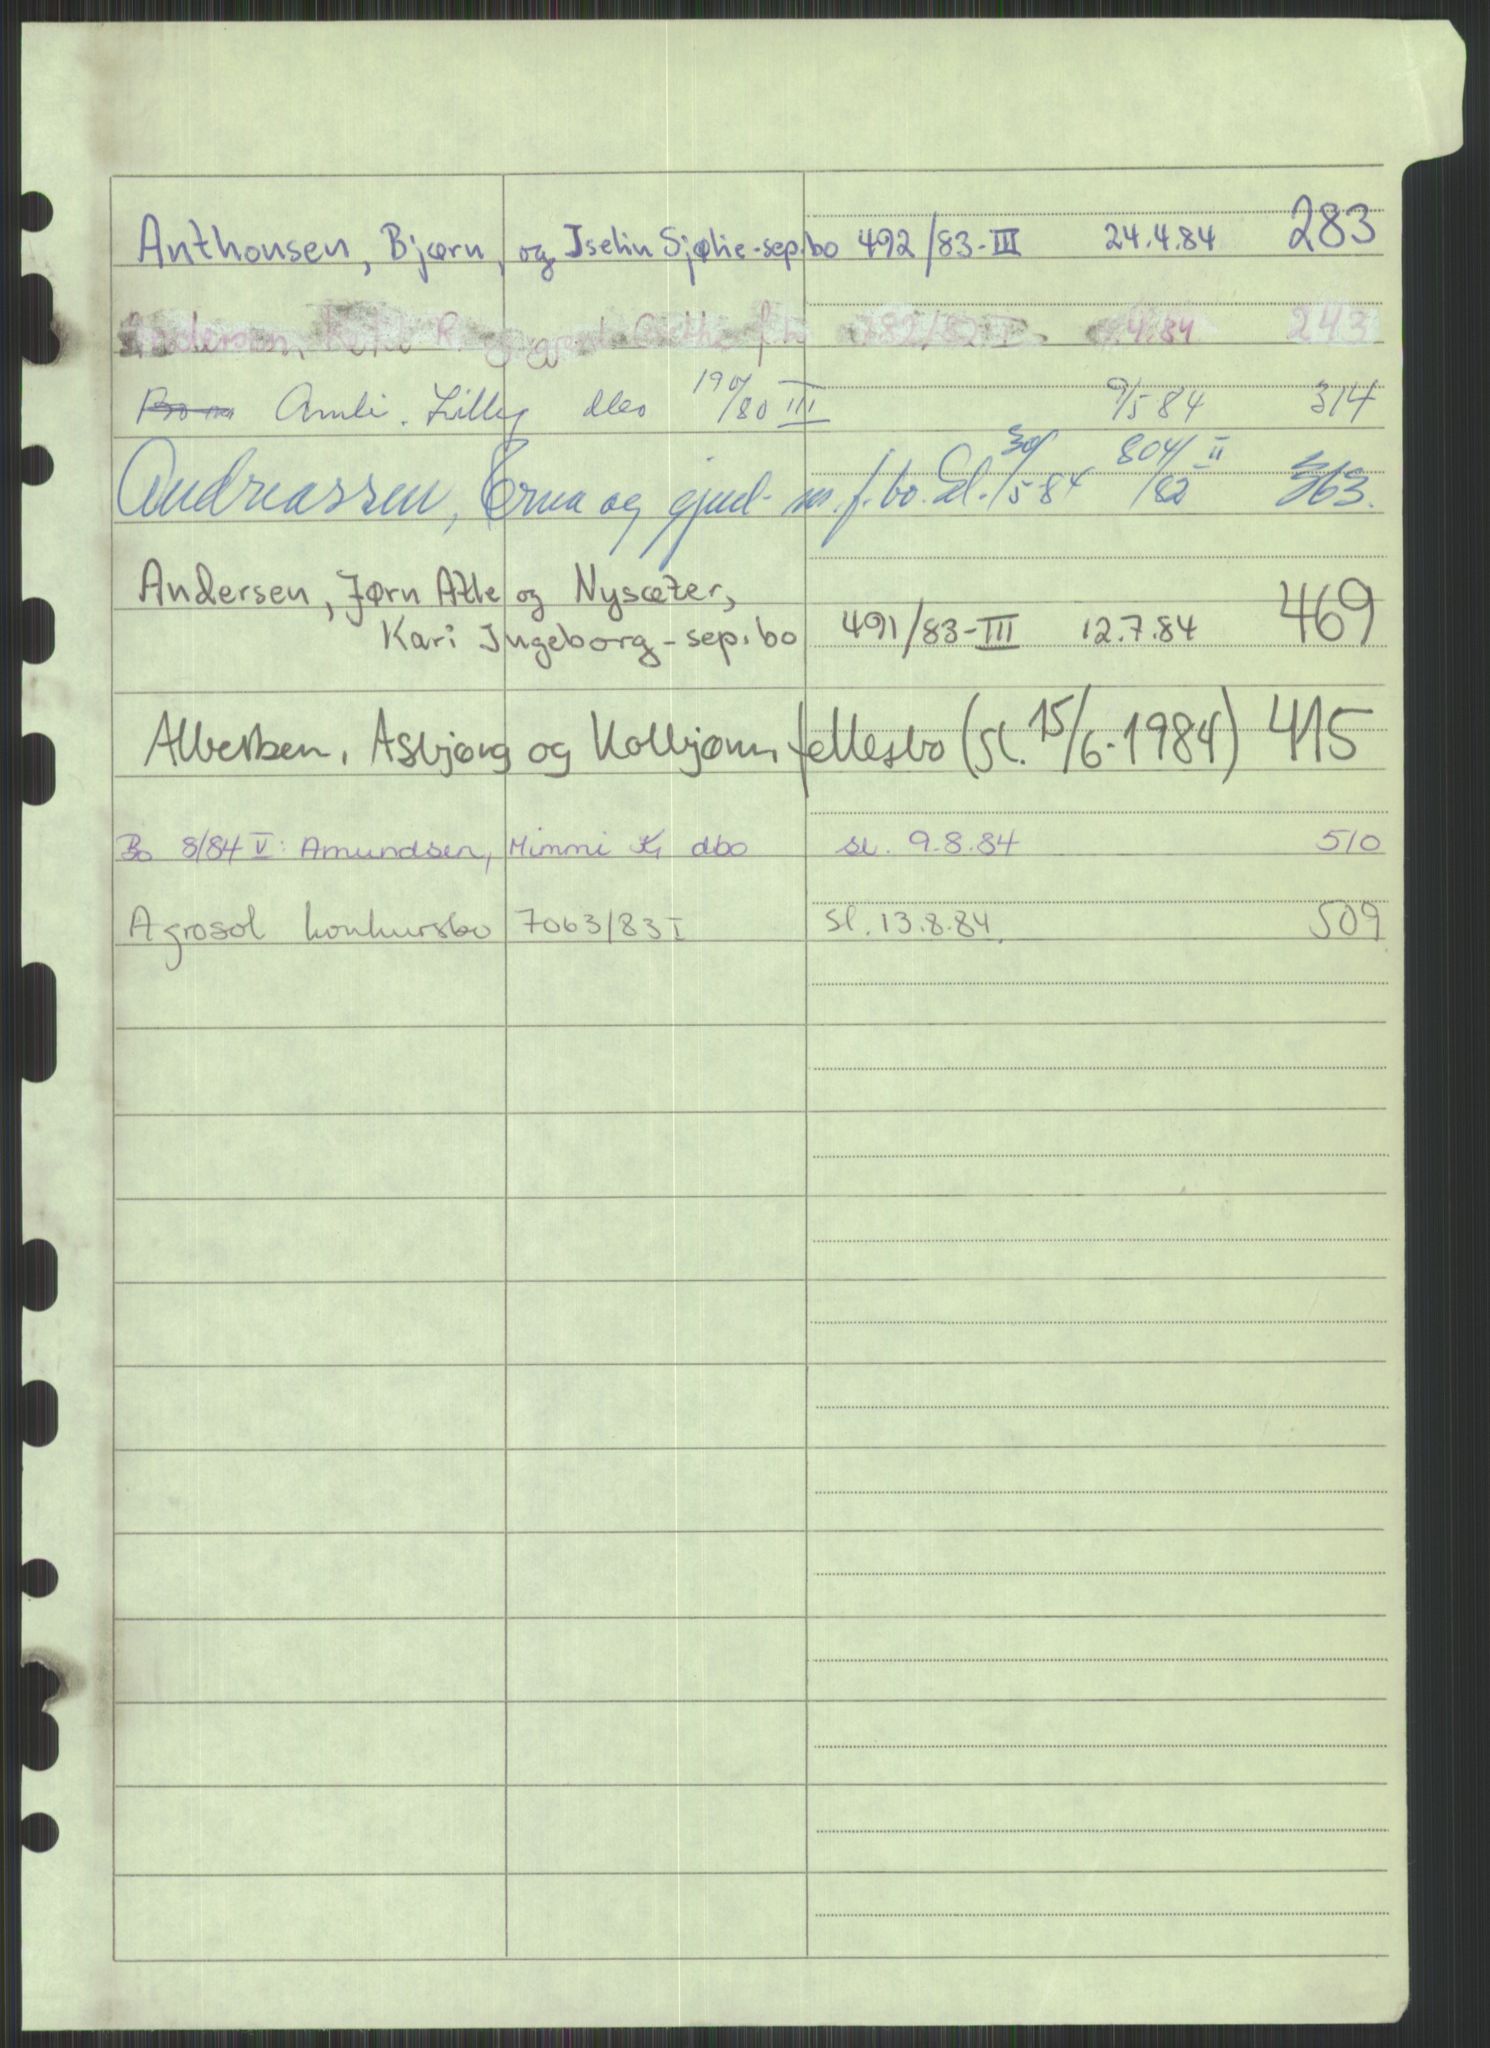 Anthonsen, Bjørn, og Iselin Sjølie - sep.bo 492/83-III 24.4.84 283
Andersen, R. og 782/82 I 4.84 243
Amli. Lilly dbo 190/80 III 9/5 84 314
Andreassen, Erna og gjenl. m. f.bo. Sl. 30/5-84 804/82 II 363.
Andersen, Jørn Atle og Nysæter,
Kari Ingeborg - sep.bo 491/83-III 12.7.84 469
Albertsen, Asbjørg og Kolbjørn, fellesbo (sl. 15/6-1984) 415
Bo 8/84 V: Amundsen, Mimmi K, dbo sl. 9.8.84 510
Agrosol konkursbo 7063/83 I sl. 13.8.84. 509